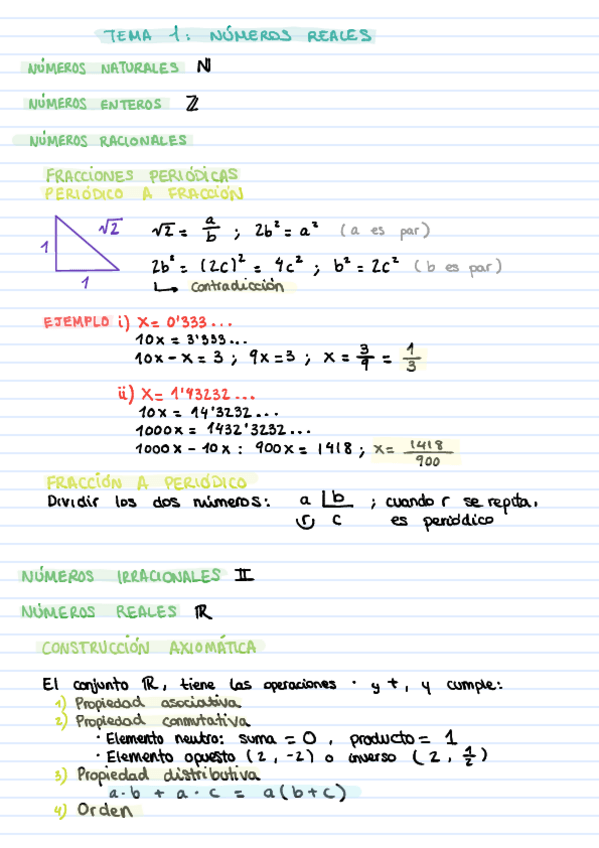 TEMA 1: NÚMEROS REALES
NÚMEROS NATURALES ℕ
NÚMEROS ENTEROS ℤ
NÚMEROS RACIONALES
FRACCIONES PERIÓDICAS
PERIÓDICO A FRACCIÓN
1 √2 1
√2 = a/b ; 2b² = a² (a es par)
2b² = (2c)² = 4c² ; b² = 2c² (b es par)
↳ contradicción
EJEMPLO i) X= 0'333...
10x = 3'333...
10x - x = 3 ; 9x = 3 ; x = 3/9 = 1/3
ii) X= 1'43232...
10x = 14'3232...
1000x = 1432'3232...
1000x - 10x : 900x = 1418 ; x= 1418/900
FRACCIÓN A PERIÓDICO
Dividir los dos números: a |b ; cuando r se repita,
r c es periódico
NÚMEROS IRRACIONALES 𝕀
NÚMEROS REALES ℝ
CONSTRUCCIÓN AXIOMÁTICA
El conjunto ℝ, tiene las operaciones · y +, y cumple:
1) Propiedad asociativa
2) Propiedad conmutativa
· Elemento neutro: suma = 0 , producto = 1
· Elemento opuesto (2, -2) o inverso (2, 1/2)
3) Propiedad distributiva
a·b + a·c = a(b+c)
4) Orden